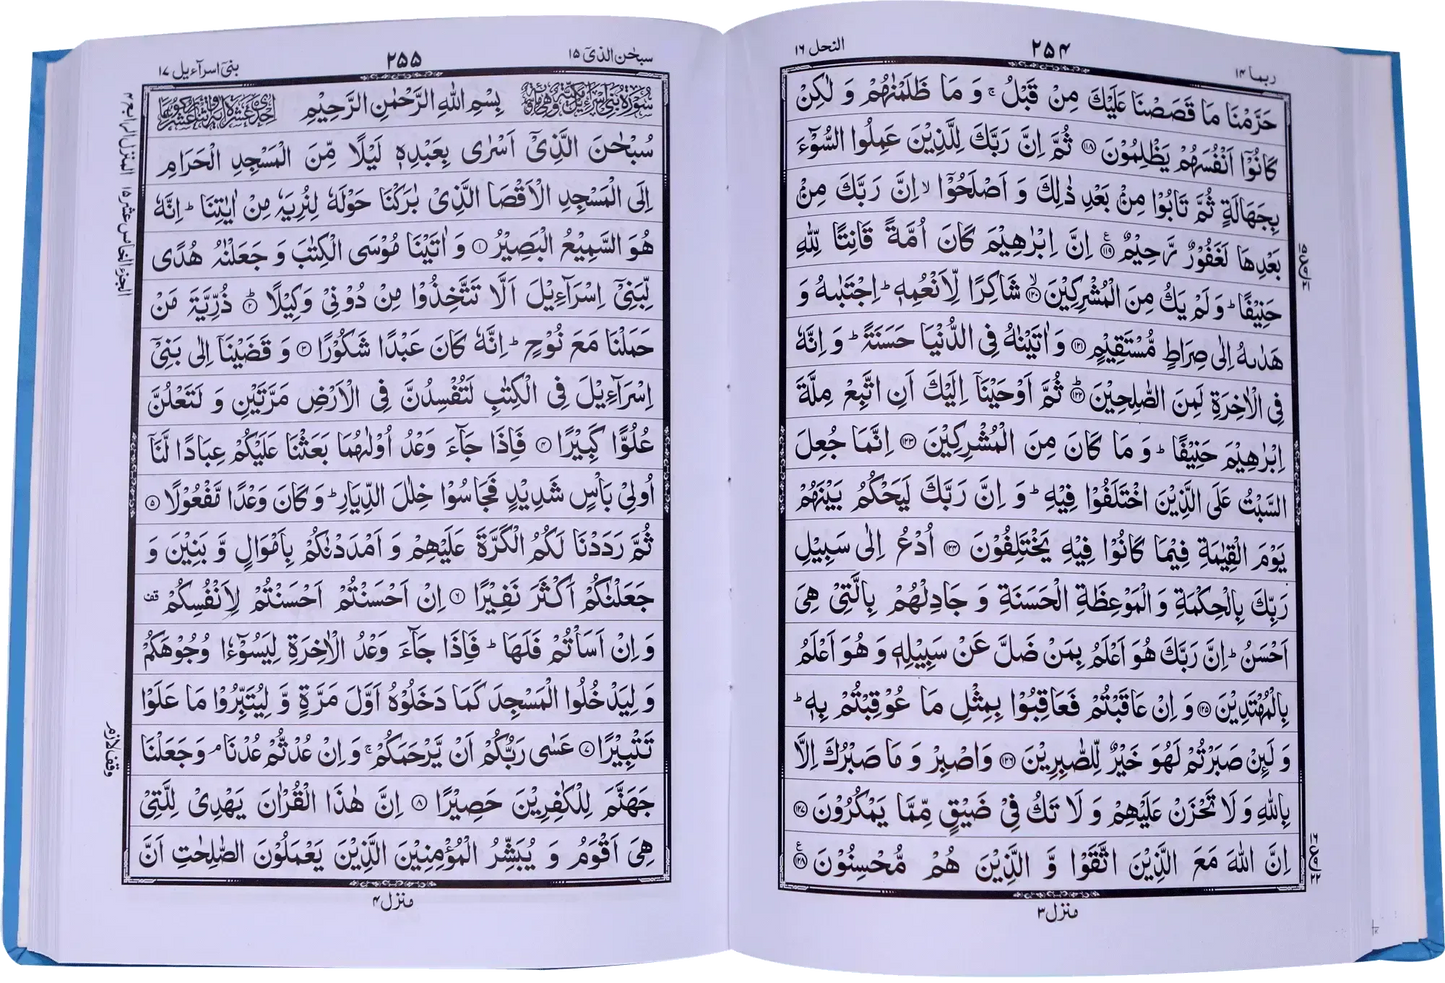 ربما ١٤
٢٥٤
النحل ١٦
حَرَّمْنَا مَا قَصَصْنَا عَلَيْكَ مِنْ قَبْلُ ۚ وَ مَا ظَلَمْنٰهُمْ وَ لٰكِنْ
كَانُوْٓا اَنْفُسَهُمْ يَظْلِمُوْنَ ﴿١١٨﴾ ثُمَّ اِنَّ رَبَّكَ لِلَّذِيْنَ عَمِلُوا السُّوْٓءَ
بِجَهَالَةٍ ثُمَّ تَابُوْا مِنْۢ بَعْدِ ذٰلِكَ وَ اَصْلَحُوْٓا ۙ اِنَّ رَبَّكَ مِنْۢ
بَعْدِهَا لَغَفُوْرٌ رَّحِيْمٌ ﴿١١٩﴾ اِنَّ اِبْرٰهِيْمَ كَانَ اُمَّةً قَانِتًا لِّلّٰهِ
حَنِيْفًا ؕ وَ لَمْ يَكُ مِنَ الْمُشْرِكِيْنَ ﴿١٢٠﴾ شَاكِرًا لِّاَنْعُمِهٖ ؕ اِجْتَبٰىهُ وَ
هَدٰىهُ اِلٰى صِرَاطٍ مُّسْتَقِيْمٍ ﴿١٢١﴾ وَ اٰتَيْنٰهُ فِى الدُّنْيَا حَسَنَةً ؕ وَ اِنَّهٗ
فِى الْاٰخِرَةِ لَمِنَ الصّٰلِحِيْنَ ﴿١٢٢﴾ ثُمَّ اَوْحَيْنَآ اِلَيْكَ اَنِ اتَّبِعْ مِلَّةَ
اِبْرٰهِيْمَ حَنِيْفًا ؕ وَ مَا كَانَ مِنَ الْمُشْرِكِيْنَ ﴿١٢٣﴾ اِنَّمَا جُعِلَ
السَّبْتُ عَلَى الَّذِيْنَ اخْتَلَفُوْا فِيْهِ ؕ وَ اِنَّ رَبَّكَ لَيَحْكُمُ بَيْنَهُمْ
يَوْمَ الْقِيٰمَةِ فِيْمَا كَانُوْا فِيْهِ يَخْتَلِفُوْنَ ﴿١٢٤﴾ اُدْعُ اِلٰى سَبِيْلِ
رَبِّكَ بِالْحِكْمَةِ وَ الْمَوْعِظَةِ الْحَسَنَةِ وَ جَادِلْهُمْ بِالَّتِىْ هِىَ
اَحْسَنُ ؕ اِنَّ رَبَّكَ هُوَ اَعْلَمُ بِمَنْ ضَلَّ عَنْ سَبِيْلِهٖ وَ هُوَ اَعْلَمُ
بِالْمُهْتَدِيْنَ ﴿١٢٥﴾ وَ اِنْ عَاقَبْتُمْ فَعَاقِبُوْا بِمِثْلِ مَا عُوْقِبْتُمْ بِهٖ ؕ
وَ لَىِٕنْ صَبَرْتُمْ لَهُوَ خَيْرٌ لِّلصّٰبِرِيْنَ ﴿١٢٦﴾ وَاصْبِرْ وَ مَا صَبْرُكَ اِلَّا
بِاللّٰهِ وَ لَا تَحْزَنْ عَلَيْهِمْ وَ لَا تَكُ فِىْ ضَيْقٍ مِّمَّا يَمْكُرُوْنَ ﴿١٢٧﴾
اِنَّ اللّٰهَ مَعَ الَّذِيْنَ اتَّقَوْا وَّ الَّذِيْنَ هُمْ مُّحْسِنُوْنَ ﴿١٢٨﴾
منزل ٣
سبحٰن الذىٓ ١٥
٢٥٥
بنىٓ اسرآءيل ١٧
بِسْمِ اللّٰهِ الرَّحْمٰنِ الرَّحِيْمِ
سُبْحٰنَ الَّذِىْٓ اَسْرٰى بِعَبْدِهٖ لَيْلًا مِّنَ الْمَسْجِدِ الْحَرَامِ
اِلَى الْمَسْجِدِ الْاَقْصَا الَّذِىْ بٰرَكْنَا حَوْلَهٗ لِنُرِيَهٗ مِنْ اٰيٰتِنَا ؕ اِنَّهٗ
هُوَ السَّمِيْعُ الْبَصِيْرُ ﴿١﴾ وَ اٰتَيْنَا مُوْسَى الْكِتٰبَ وَ جَعَلْنٰهُ هُدًى
لِّبَنِىْٓ اِسْرَآءِيْلَ اَلَّا تَتَّخِذُوْا مِنْ دُوْنِىْ وَكِيْلًا ﴿٢﴾ ذُرِّيَّةَ مَنْ
حَمَلْنَا مَعَ نُوْحٍ ؕ اِنَّهٗ كَانَ عَبْدًا شَكُوْرًا ﴿٣﴾ وَ قَضَيْنَآ اِلٰى بَنِىْٓ
اِسْرَآءِيْلَ فِى الْكِتٰبِ لَتُفْسِدُنَّ فِى الْاَرْضِ مَرَّتَيْنِ وَ لَتَعْلُنَّ
عُلُوًّا كَبِيْرًا ﴿٤﴾ فَاِذَا جَآءَ وَعْدُ اُوْلٰىهُمَا بَعَثْنَا عَلَيْكُمْ عِبَادًا لَّنَآ
اُولِىْ بَاْسٍ شَدِيْدٍ فَجَاسُوْا خِلٰلَ الدِّيَارِ ؕ وَ كَانَ وَعْدًا مَّفْعُوْلًا ﴿٥﴾
ثُمَّ رَدَدْنَا لَكُمُ الْكَرَّةَ عَلَيْهِمْ وَ اَمْدَدْنٰكُمْ بِاَمْوَالٍ وَّ بَنِيْنَ وَ
جَعَلْنٰكُمْ اَكْثَرَ نَفِيْرًا ﴿٦﴾ اِنْ اَحْسَنْتُمْ اَحْسَنْتُمْ لِاَنْفُسِكُمْ قف
وَ اِنْ اَسَاْتُمْ فَلَهَا ؕ فَاِذَا جَآءَ وَعْدُ الْاٰخِرَةِ لِيَسُوْٓءٗا وُجُوْهَكُمْ
وَ لِيَدْخُلُوا الْمَسْجِدَ كَمَا دَخَلُوْهُ اَوَّلَ مَرَّةٍ وَّ لِيُتَبِّرُوْا مَا عَلَوْا
تَتْبِيْرًا ﴿٧﴾ عَسٰى رَبُّكُمْ اَنْ يَّرْحَمَكُمْ ۚ وَ اِنْ عُدْتُّمْ عُدْنَا ۘ وَجَعَلْنَا
جَهَنَّمَ لِلْكٰفِرِيْنَ حَصِيْرًا ﴿٨﴾ اِنَّ هٰذَا الْقُرْاٰنَ يَهْدِىْ لِلَّتِىْ
هِىَ اَقْوَمُ وَ يُبَشِّرُ الْمُؤْمِنِيْنَ الَّذِيْنَ يَعْمَلُوْنَ الصّٰلِحٰتِ اَنَّ
وقف لازم
منزل ٤